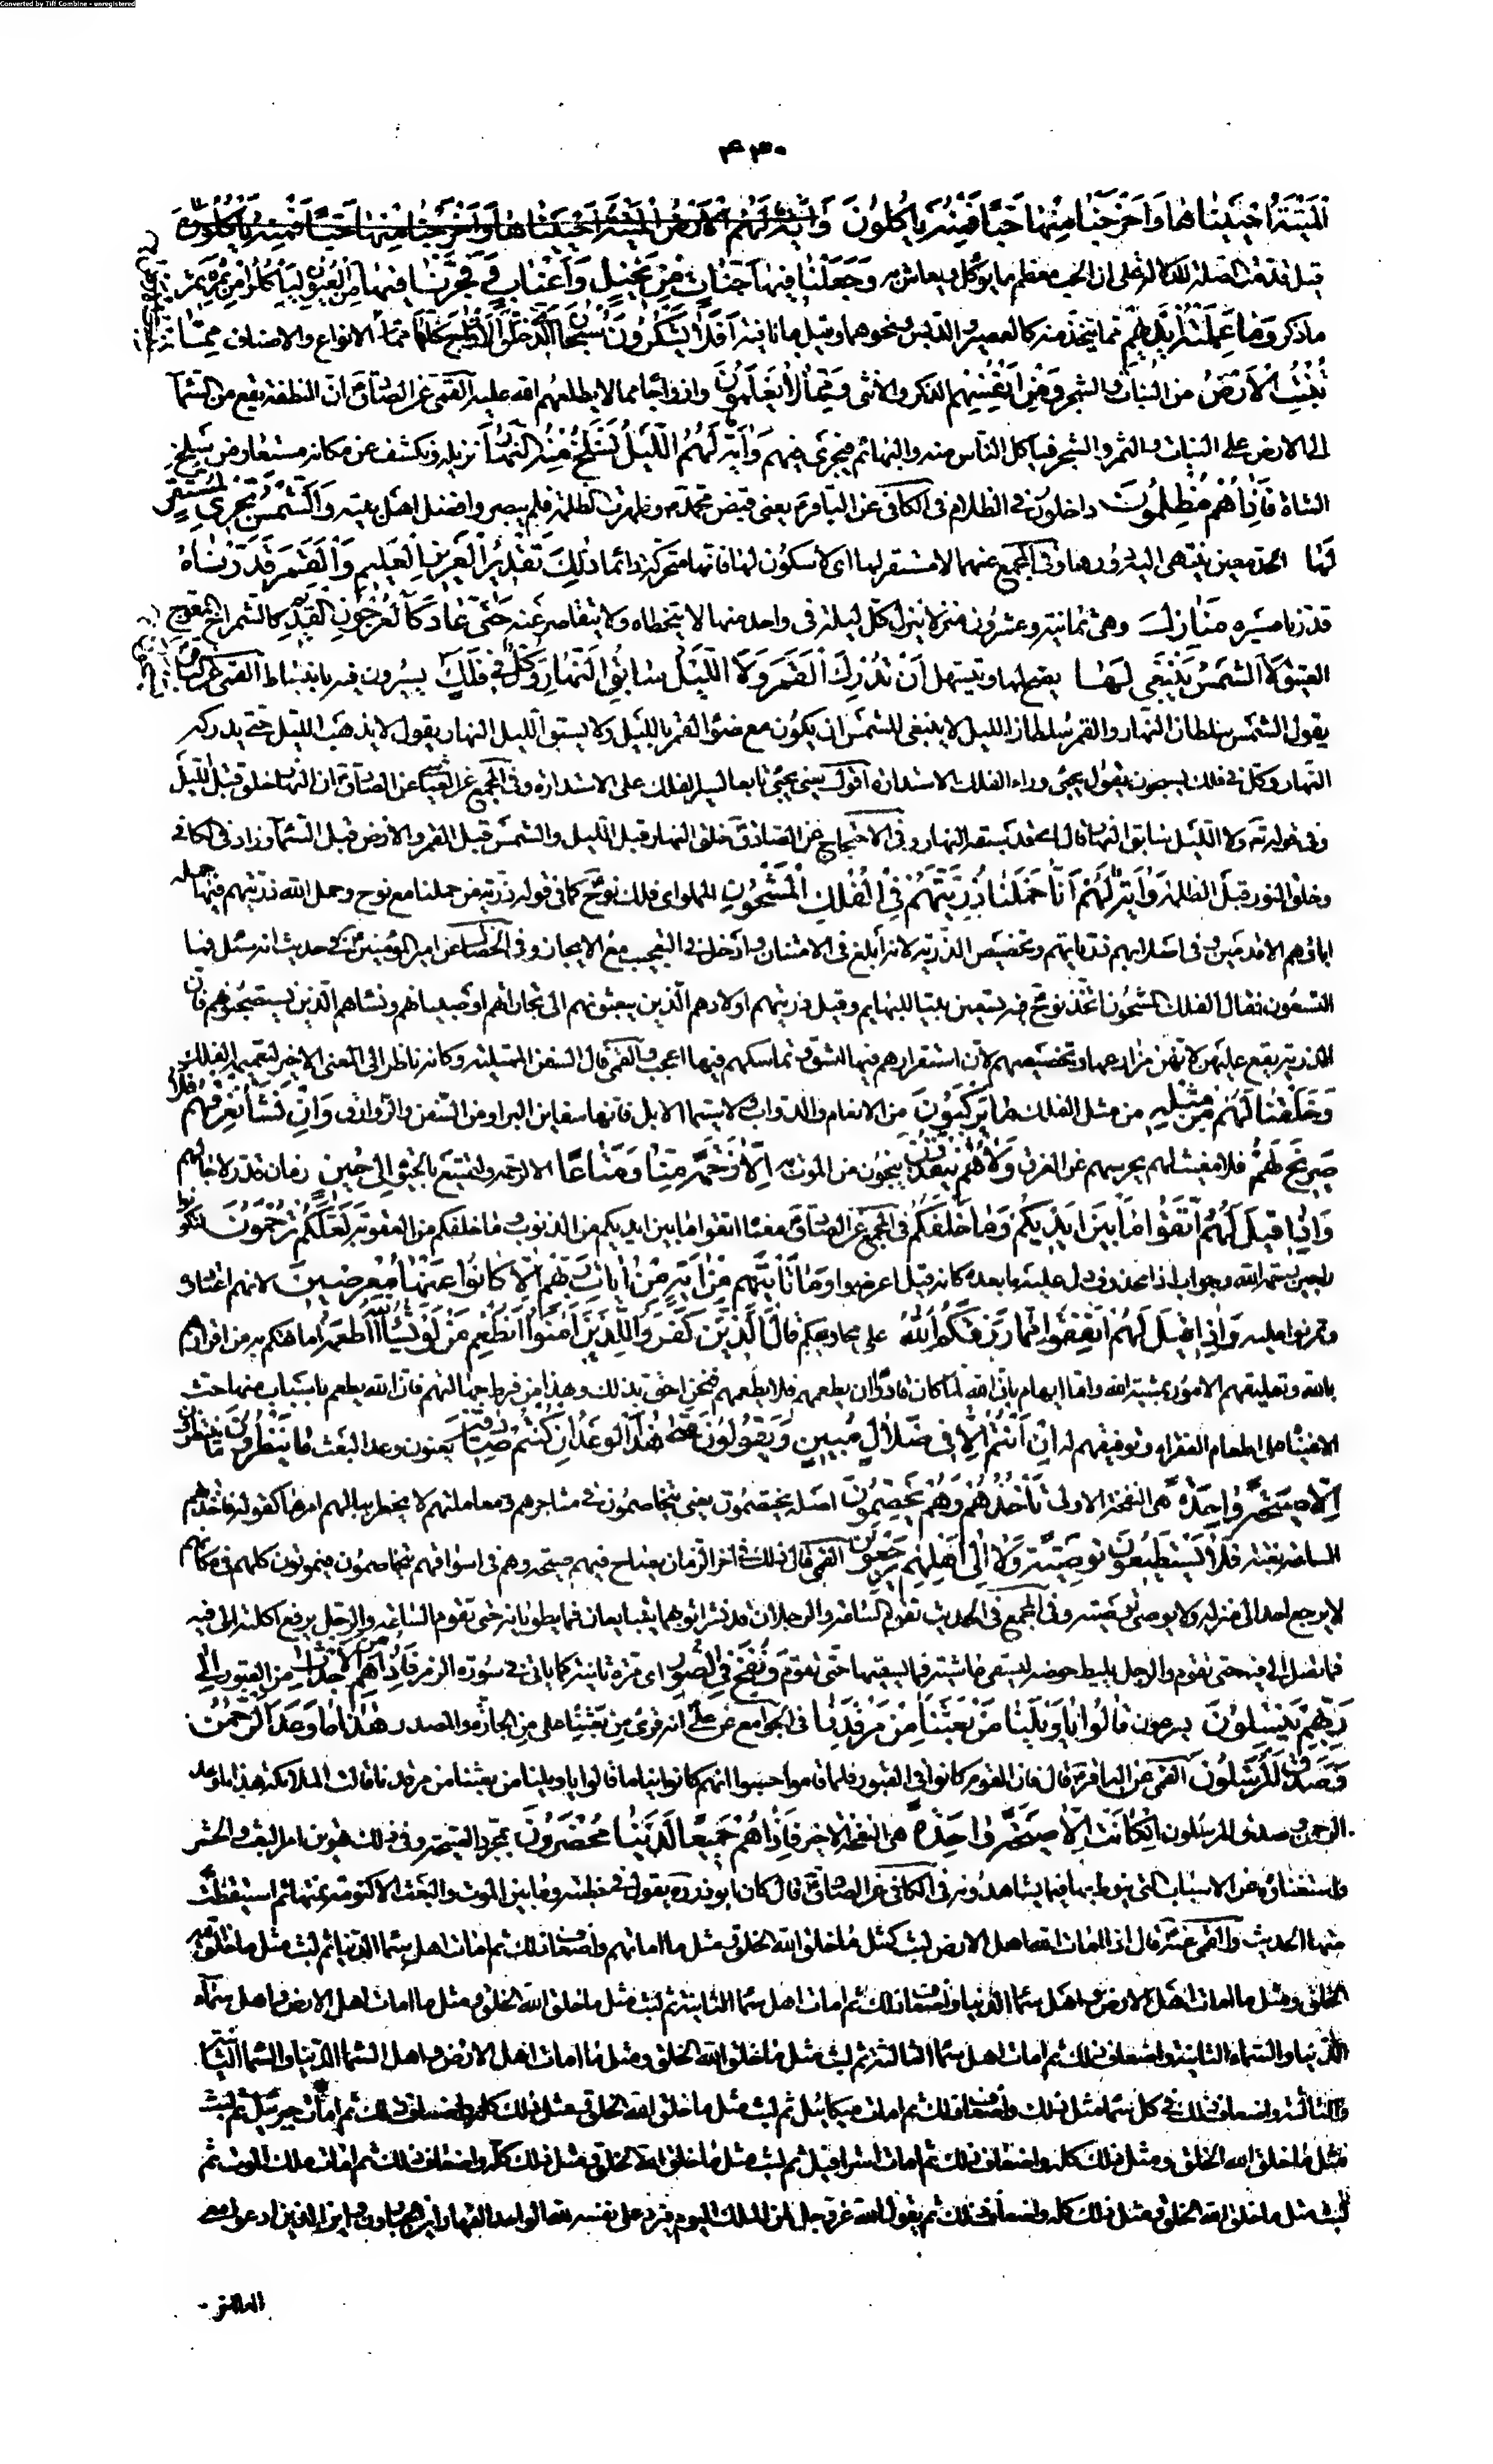 Converted by Tiff Combine - unregistered
٤٣٠
الْمَيْتَةُ أَحْيَيْنَاهَا وَأَخْرَجْنَا مِنْهَا حَبًّا فَمِنْهُ يَأْكُلُونَ وَآيَةٌ لَهُمُ الْأَرْضُ الْمَيْتَةُ أَحْيَيْنَاهَا وَأَخْرَجْنَا مِنْهَا حَبًّا فَمِنْهُ يَأْكُلُونَ
قيل قدمت الصلة للدلالة على ان الحب معظم ما يؤكل ويعاش به وَجَعَلْنَا فِيهَا جَنَّاتٍ مِنْ نَخِيلٍ وَأَعْنَابٍ وَفَجَّرْنَا فِيهَا مِنَ الْعُيُونِ لِيَأْكُلُوا مِنْ ثَمَرِهِ ثمر
ما ذكر وَمَا عَمِلَتْهُ أَيْدِيهِمْ مما يتخذ منه كالعصير والدبس ونحوهما وقيل ما نافية أَفَلَا يَشْكُرُونَ سُبْحَانَ الَّذِي خَلَقَ الْأَزْوَاجَ كُلَّهَا الانواع والاصناف مِمَّا
تُنْبِتُ الْأَرْضُ من النبات والشجر وَمِنْ أَنْفُسِهِمْ الذكر والانثى وَمِمَّا لَا يَعْلَمُونَ وازواجا مما لا يطلعهم الله عليه القمى عن الصادق ان النطفة تقع من السماء
الى الارض على النبات والثمر والشجر فيأكل الناس منه والبهائم فيجرى فيهم وَآيَةٌ لَهُمُ اللَّيْلُ نَسْلَخُ مِنْهُ النَّهَارَ نزيله ونكشف عن مكانه مستعار من سلخ
الشاة فَإِذَا هُمْ مُظْلِمُونَ داخلون فى الظلام فى الكافى عن الباقر يعنى قبض محمد وظهرت الظلمة فلم يبصروا فضل اهل بيته وَالشَّمْسُ تَجْرِي لِمُسْتَقَرٍّ
لَهَا لحد معين ينتهى اليه دورها وفى المجمع عنهما لا مستقر لها اى لا سكون لها فانها متحركة دائما ذَلِكَ تَقْدِيرُ الْعَزِيزِ الْعَلِيمِ وَالْقَمَرَ قَدَّرْنَاهُ
قدرنا مسيره مَنَازِلَ وهى ثمانية وعشرون منزلا ينزل كل ليلة فى واحد منها لا يتخطاه ولا يتقاصر عنه حَتَّى عَادَ كَالْعُرْجُونِ الْقَدِيمِ كالشمراخ المعوج
العتيق لَا الشَّمْسُ يَنْبَغِي لَهَا يصح لها ويتسهل أَنْ تُدْرِكَ الْقَمَرَ وَلَا اللَّيْلُ سَابِقُ النَّهَارِ وَكُلٌّ فِي فَلَكٍ يسيرون فيه بانبساط القمى عن الباقر
يقول الشمس سلطان النهار والقمر سلطان الليل لا ينبغى للشمس ان يكون مع ضوء القمر بالليل ولا يسبق الليل النهار يقول لا يذهب الليل حتى يدركه
النهار وكل فى فلك يسبحون يقول يجيئ وراء الفلك الاستدارة اقول يعنى يجيئ تابعا لسير الفلك على الاستدارة وفى المجمع عن العياشى عن الصادق ان النهار خلق قبل الليل
وفى قوله ولا الليل سابق النهار قال اى قد سبقه النهار وفى الاحتجاج عن الصادق خلق النهار قبل الليل والشمس قبل القمر والارض قبل السماء وزاد فى الكافى
وخلق النور قبل الظلمة وَآيَةٌ لَهُمْ أَنَّا حَمَلْنَا ذُرِّيَّتَهُمْ فِي الْفُلْكِ الْمَشْحُونِ المملو اى فلك نوح كما فى قوله ذرية من حملنا مع نوح وحمل الله ذريتهم فيها حمله
اباؤهم الاقدمين وفى اصلابهم ذرياتهم وتخصيص الذرية لانه ابلغ فى الامتنان وادخل فى التعجب مع الايجاز وفى الخصال عن امير المؤمنين فى حديث انه سئل فما
التسعون فقال الفلك المشحون اتخذ نوح فيه تسعين بيتا للبهايم وقيل ذريتهم اولادهم الذين يبعثونهم الى تجاراتهم او صبيانهم ونسائهم الذين يستصحبونهم فان
الذرية يقع عليهن لانهن مزارعها وتخصيصهم لان استقرارهم فيها اشق وتماسكهم فيها اعجب والقمى قال السفن الممتلئة وكانه ناظر الى المعنى الاخير لتعميم الفلك
وَخَلَقْنَا لَهُمْ مِنْ مِثْلِهِ من مثل الفلك مَا يَرْكَبُونَ من الانعام والدواب ولا سيما الابل فانها سفاين البر او من السفن والزوارق وَإِنْ نَشَأْ نُغْرِقْهُمْ فَلَا
صَرِيخَ لَهُمْ فلا مغيث لهم يحرسهم عن الغرق وَلَا هُمْ يُنْقَذُونَ ينجون من الموت به إِلَّا رَحْمَةً مِنَّا وَمَتَاعًا الا لرحمة ولتمتيع بالحيوة إِلَى حِينٍ زمان قدر لاجالهم
وَإِذَا قِيلَ لَهُمُ اتَّقُوا مَا بَيْنَ أَيْدِيكُمْ وَمَا خَلْفَكُمْ فى المجمع عن الصادق معناه اتقوا ما بين ايديكم من الذنوب وما خلفكم من العقوبة لَعَلَّكُمْ تُرْحَمُونَ لتكونوا
راجين رحمة الله وجواب اذا محذوف دل عليه ما بعده كانه قيل اعرضوا وَمَا تَأْتِيهِمْ مِنْ آيَةٍ مِنْ آيَاتِ رَبِّهِمْ إِلَّا كَانُوا عَنْهَا مُعْرِضِينَ لانهم اعتادوه
وتمرنوا عليه وَإِذَا قِيلَ لَهُمْ أَنْفِقُوا مِمَّا رَزَقَكُمُ اللَّهُ على محاويجكم قَالَ الَّذِينَ كَفَرُوا لِلَّذِينَ آمَنُوا أَنُطْعِمُ مَنْ لَوْ يَشَاءُ اللَّهُ أَطْعَمَهُ اما تهكم به من اقرارهم
بالله وتعليقهم الامور بمشية الله واما ايهام بان الله لما كان قادرا ان يطعمهم فلم يطعمهم فنحن احق بذلك وهذا من فرط جهالتهم فان الله يطعم باسباب منها حث
الاغنياء على اطعام الفقراء وتوفيقهم له إِنْ أَنْتُمْ إِلَّا فِي ضَلَالٍ مُبِينٍ وَيَقُولُونَ مَتَى هَذَا الْوَعْدُ إِنْ كُنْتُمْ صَادِقِينَ يعنون وعد البعث مَا يَنْظُرُونَ ما ينتظرون
إِلَّا صَيْحَةً وَاحِدَةً هى النفخة الاولى تَأْخُذُهُمْ وَهُمْ يَخِصِّمُونَ اصله يختصمون يعنى يتخاصمون فى متاجرهم ومعاملتهم لا يخطر ببالهم امرها كقوله فاخذتهم
الساعة بغتة فَلَا يَسْتَطِيعُونَ تَوْصِيَةً وَلَا إِلَى أَهْلِهِمْ يَرْجِعُونَ القمى قال ذلك فى اخر الزمان يصاح فيهم صيحة وهم فى اسواقهم يتخاصمون فيموتون كلهم فى مكانهم
لا يرجع احد الى منزله ولا يوصى بوصية وفى المجمع فى الحديث تقوم الساعة والرجلان قد نشرا ثوبهما يتبايعان فما يطويانه حتى تقوم الساعة والرجل يرفع اكلته الى فيه
فما تصل الى فيه حتى تقوم والرجل يليط حوضه ليسقى ماشيته فما يسقيها حتى تقوم وَنُفِخَ فِي الصُّورِ اى مرة ثانية كما ياتى فى سورة الزمر فَإِذَا هُمْ مِنَ الْأَجْدَاثِ من القبور إِلَى
رَبِّهِمْ يَنْسِلُونَ يسرعون قَالُوا يَا وَيْلَنَا مَنْ بَعَثَنَا مِنْ مَرْقَدِنَا فى الجوامع عن على انه قرئ من بعثنا على من الجارة والمصدر هَذَا مَا وَعَدَ الرَّحْمَنُ
وَصَدَقَ الْمُرْسَلُونَ القمى عن الباقر قال فان القوم كانوا فى القبور فلما قاموا حسبوا انهم كانوا نياما قالوا يا ويلنا من بعثنا من مرقدنا قالت الملائكة هذا ما وعد
الرحمن وصدق المرسلون إِنْ كَانَتْ إِلَّا صَيْحَةً وَاحِدَةً هى النفخة الاخيرة فَإِذَا هُمْ جَمِيعٌ لَدَيْنَا مُحْضَرُونَ بمجرد الصيحة وفى ذلك تهوين امر البعث والحشر
واستغناؤه عن الاسباب التى ينوط بها فيما يشاهدونه فى الكافى عن الصادق قال كان ابوذر ره يقول فى خطبته وما بين الموت والبعث الا كنومة نمتها ثم استيقظت
منها الحديث والقمى عنه قال اذا امات الله اهل الارض لبث كمثل ما خلق الله الخلق ومثل ما اماتهم واضعاف ذلك ثم امات اهل سماء الدنيا ثم لبث مثل ما خلق الله
الخلق ومثل ما امات اهل الارض واهل سماء الدنيا واضعاف ذلك ثم امات اهل سماء الثانية ثم لبث مثل ما خلق الله الخلق ومثل ما امات اهل الارض واهل سماء
الدنيا والسماء الثانية واضعاف ذلك ثم امات اهل سماء الثالثة ثم لبث مثل ما خلق الله الخلق ومثل ما امات اهل الارض واهل السماء الدنيا والسماء الثانية
والثالثة واضعاف ذلك فى كل سماء مثل ذلك واضعاف ذلك ثم امات ميكائيل ثم لبث مثل ما خلق الله الخلق ومثل ذلك كله واضعاف ذلك ثم امات جبرئيل ثم لبث
مثل ما خلق الله الخلق ومثل ذلك كله واضعاف ذلك ثم امات اسرافيل ثم لبث مثل ما خلق الله الخلق ومثل ذلك كله واضعاف ذلك ثم امات ملك الموت ثم
لبث مثل ما خلق الله الخلق ومثل ذلك كله واضعاف ذلك ثم يقول الله عز وجل لمن الملك اليوم فيرد على نفسه لله الواحد القهار اين الجبارون اين الذين ادعوا معى